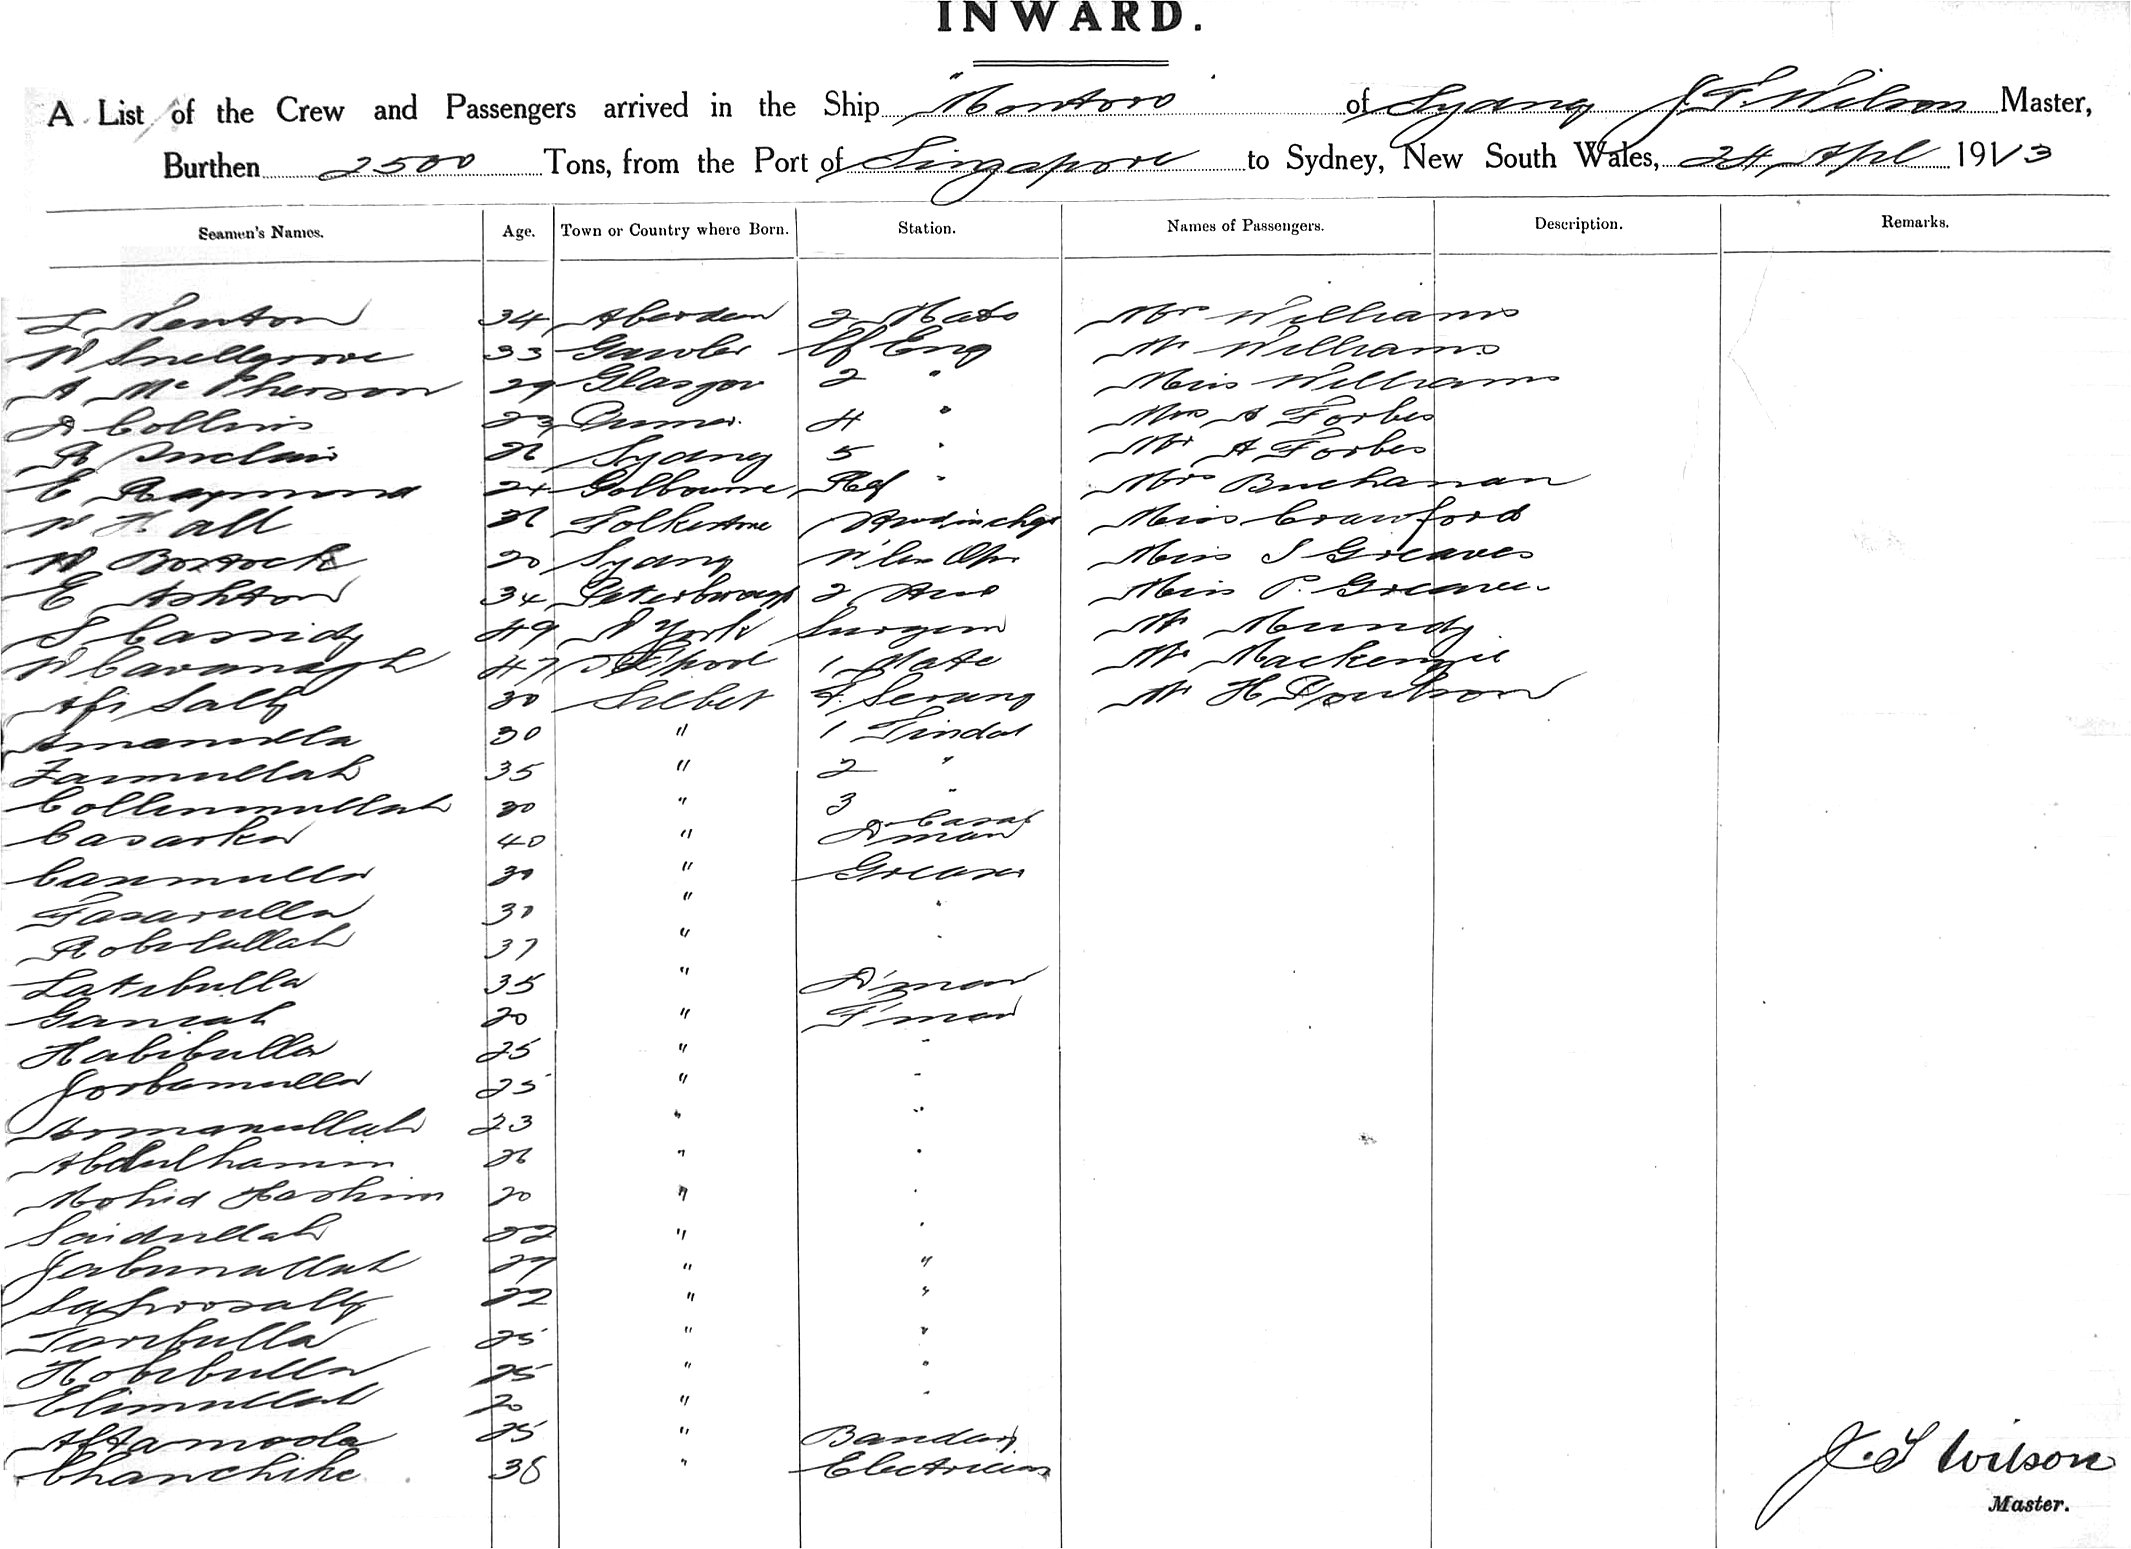 INWARD.
A List of the Crew and Passengers arrived in the Ship "Montoro" of Sydney J. F. Wilson Master,
Burthen 2500 Tons, from the Port of Singapore to Sydney, New South Wales, 24 Apl 1913
Seamen's Names. Age. Town or Country where Born. Station. Names of Passengers. Description. Remarks.
L Newton 34 Aberdeen 2 Mate Mr Williams
W Snellgrove 33 Gawler Cf Eng Mr Williams
A McPherson 29 Glasgow 2 " Miss Williams
D Collins 23 4 " Mrs A Forbes
A Sinclair 26 Sydney 5 " Mr A Forbes
E Raymond 24 Golbourne Ref " Mrs Buchanan
W Hall 36 Folkestone Stwd in chge Miss Crawford
W Bostock 20 Sydney W'less Opr Miss S Greaves
E Ashton 34 Peterborough 2 Stwd Miss P. Greaves
S Cassidy 49 N York Surgeon Mr Mundy
W Cavanagh 47 L'pool 1 Mate Mr Mackenzie
Afi Sally 30 Silbet F. Serang Mr H Poulson
Amanulla 30 " 1 Tindal
Zaimullah 35 " 2 "
Collimmullah 30 " 3 "
Casarka 40 " D man Casab
Canmulla 30 " Greaser
Fasarulla 30 " "
Robulullah 37 " "
Latibulla 35 " D'man
Ganiah 20 " F'man
Habibulla 25 " "
Jorbamulla 25 " "
Armanullah 23 " "
Abdulhamim 26 " "
Mohid Hashim 20 " "
Saidullah 22 " "
Jabunullah 27 " "
22 " "
Taribulla 25 " "
Hobibulla 25 " "
Elimullah 20 " "
Aftamoola 25 " Bandary
Chanchike 38 " Electrician
J. F Wilson
Master.